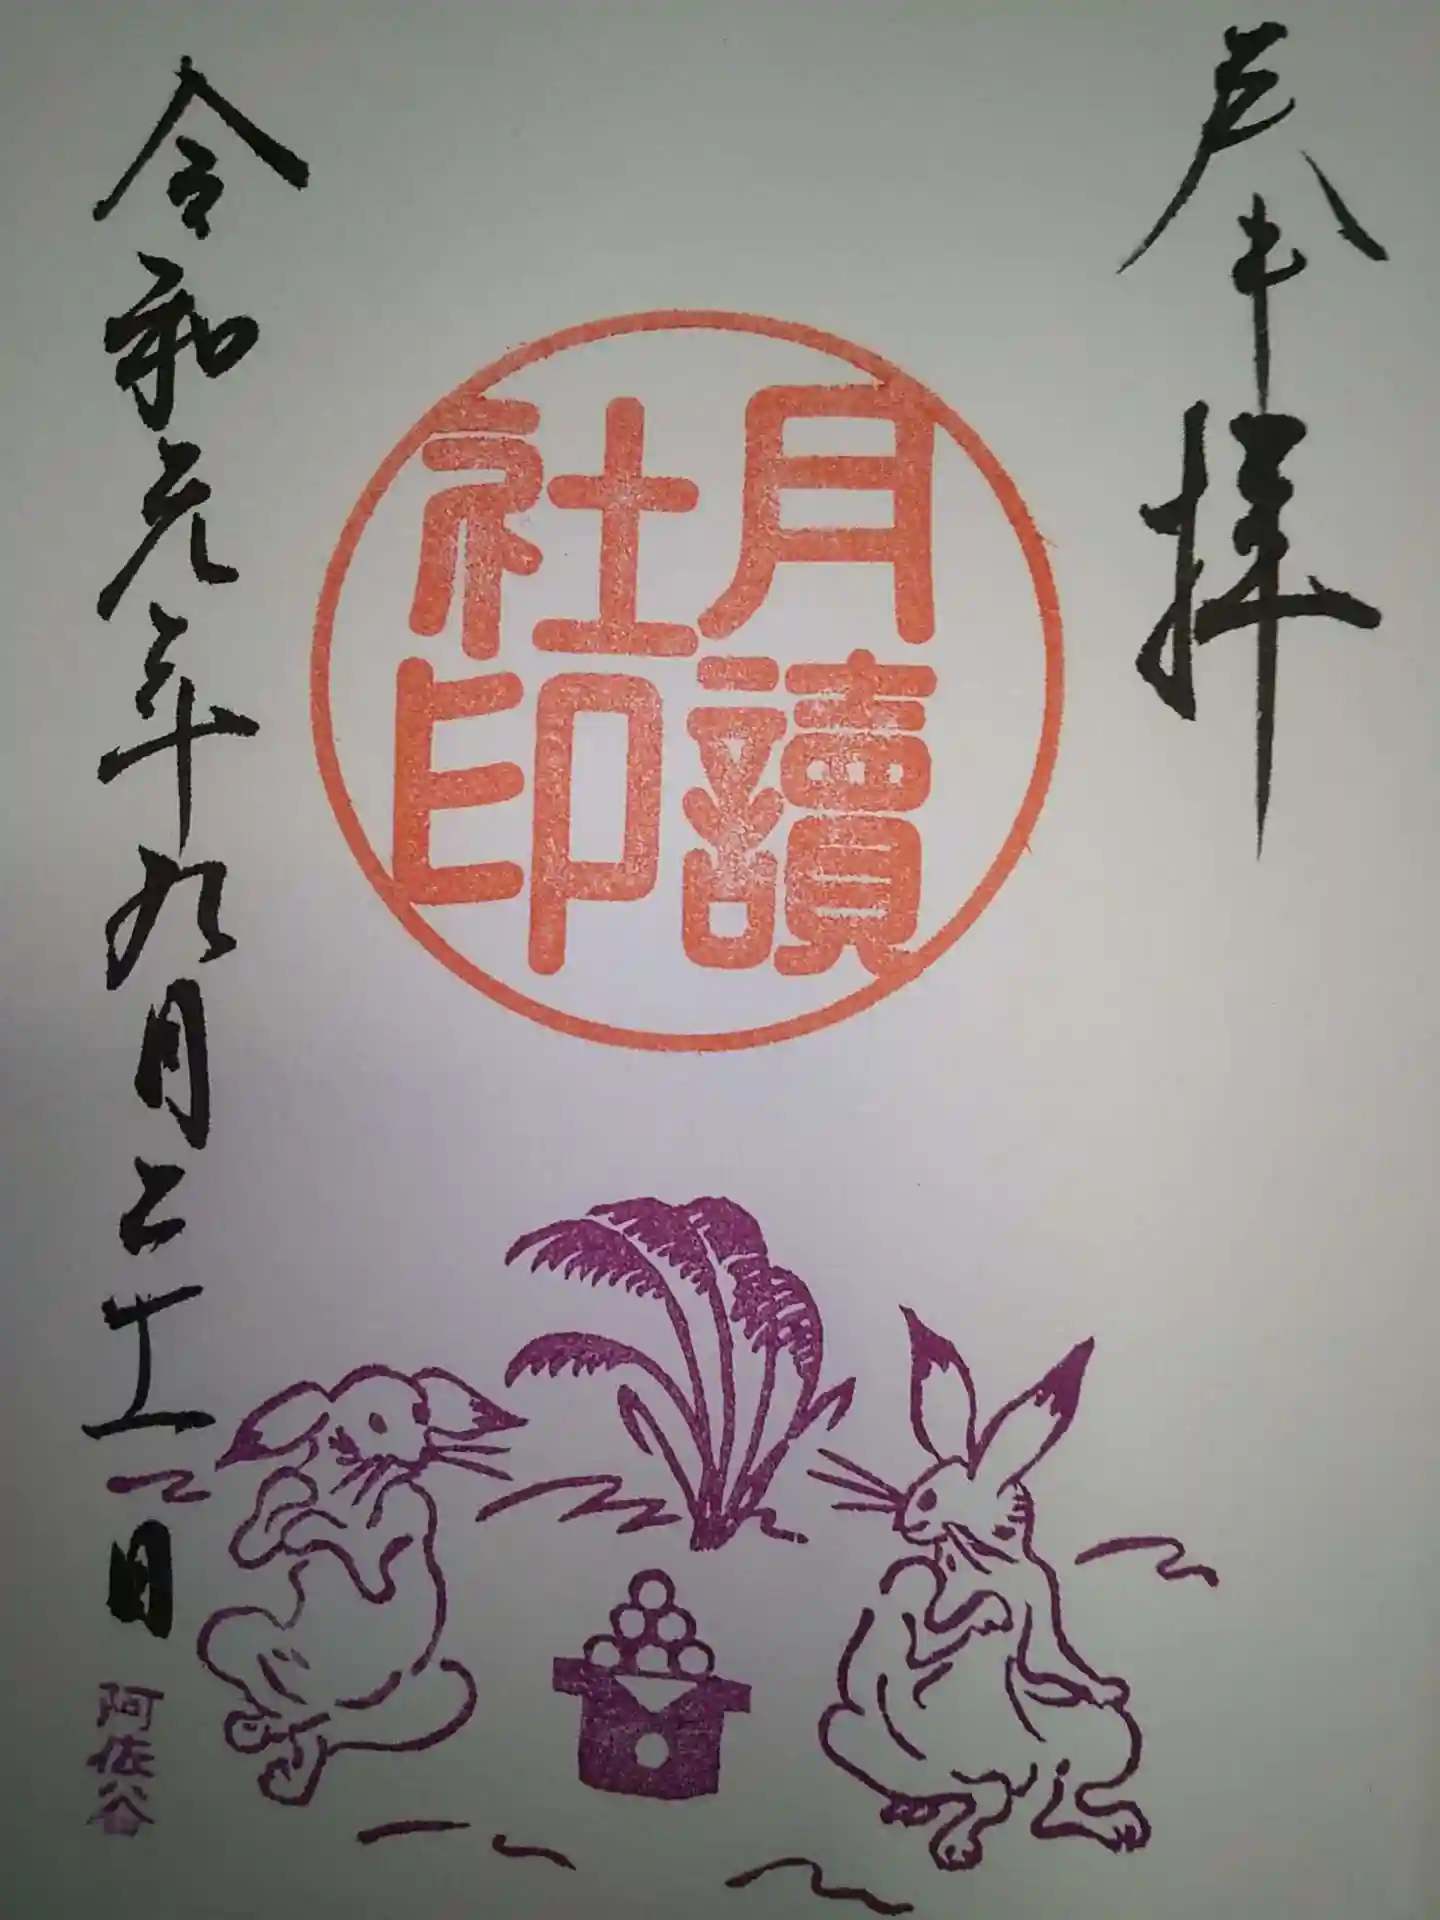 奉拝
月讀
社印
令和元年九月二十一日
阿佐谷